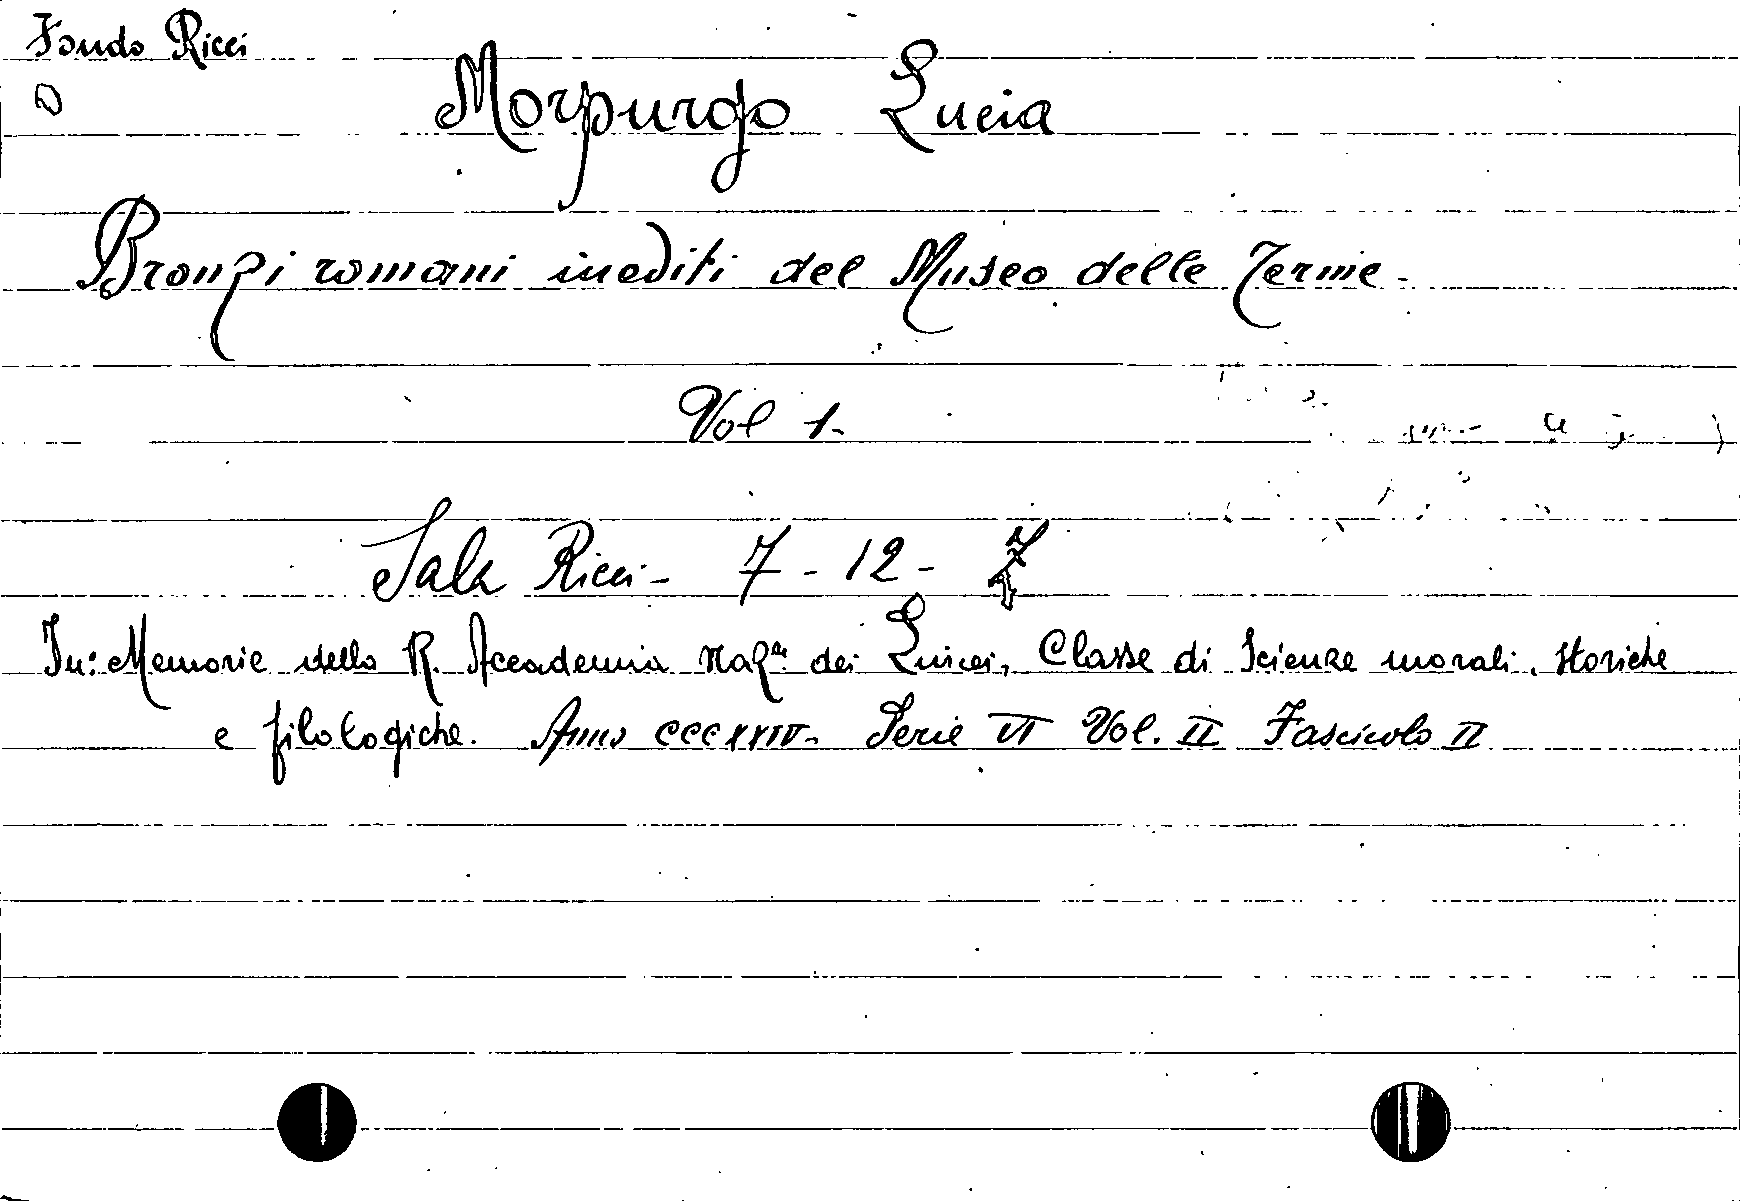 Fondo Ricci
Morpurgo Lucia
Bronzi romani inediti del Museo delle Terme -
Vol 1-
Sala Ricci - 7 - 12 - 7
In: Memorie della R. Accademia Naz.le dei Lincei, Classe di Scienze morali, storiche
e filologiche. Anno CCCXXIV - Serie VI Vol. II Fascicolo II